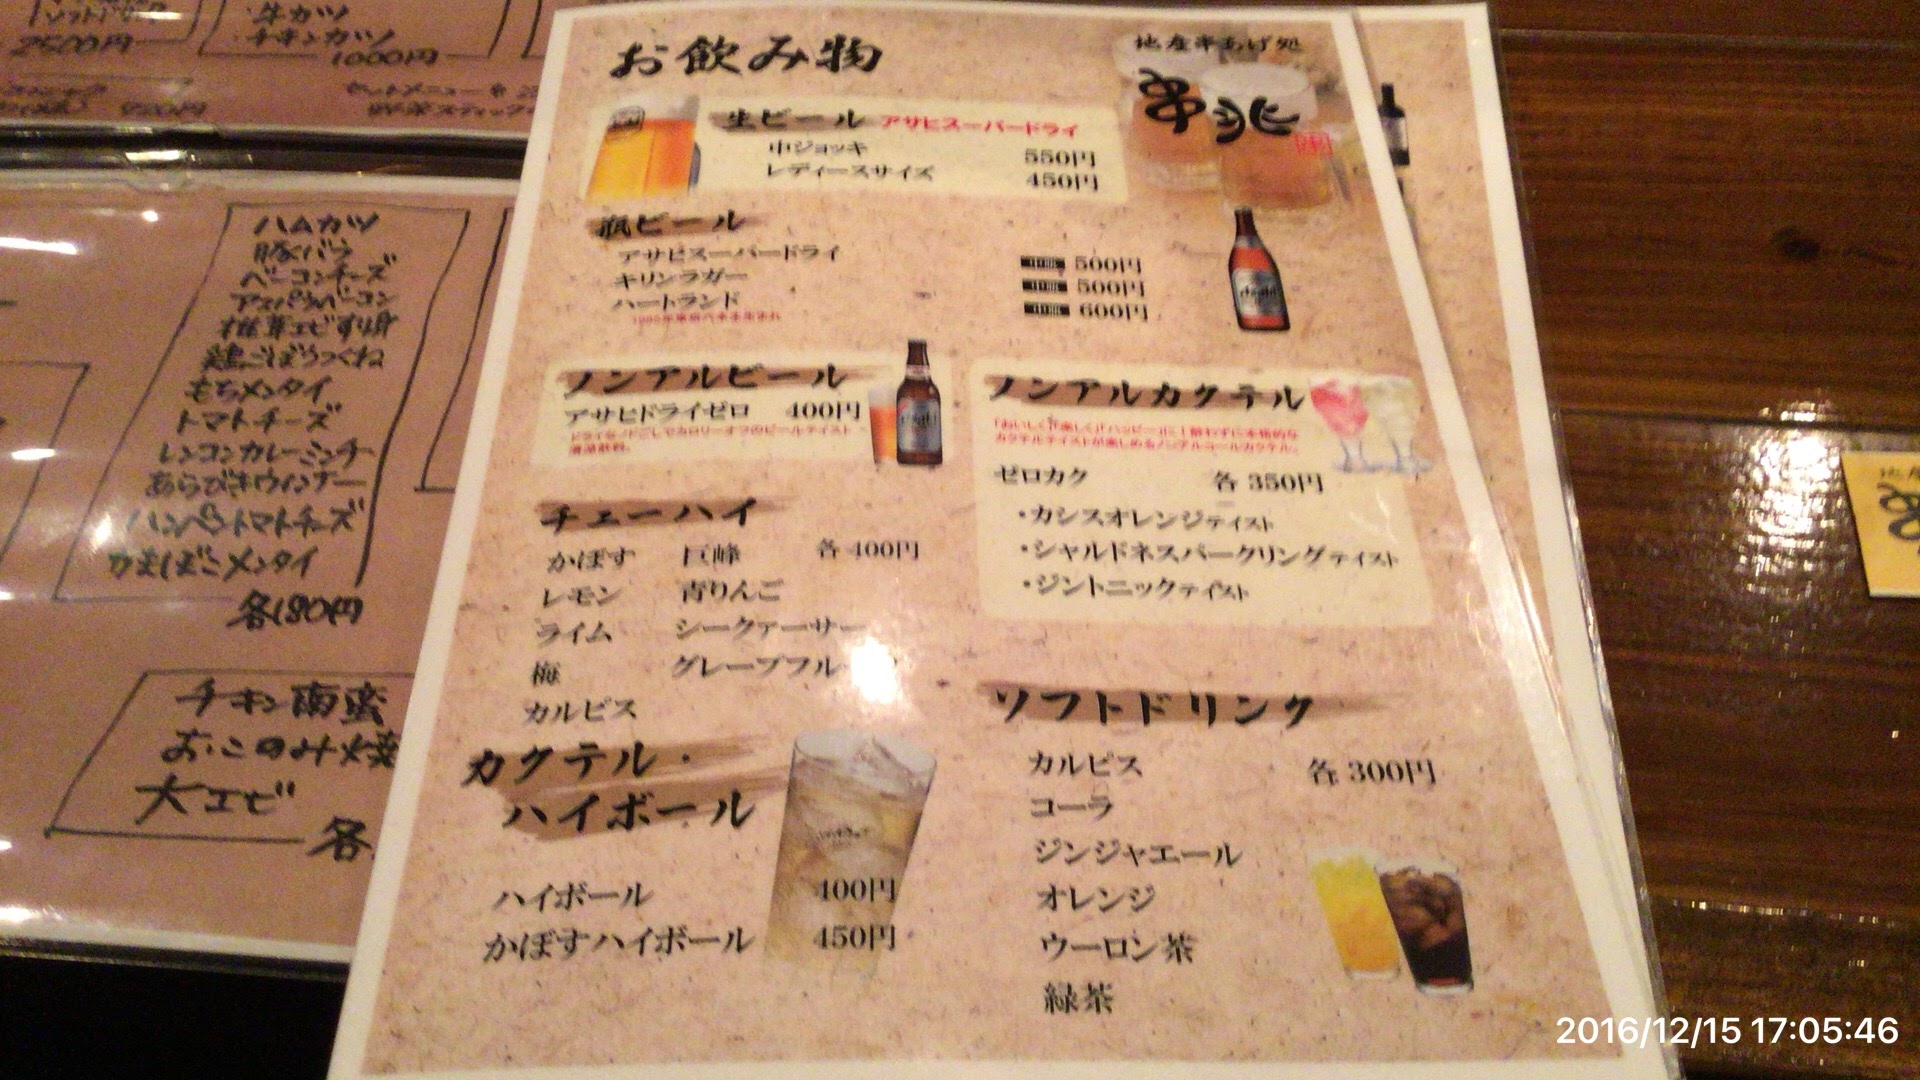 お飲み物
地産串あげ処
串兆
生ビール アサヒスーパードライ
中ジョッキ 550円
レディースサイズ 450円
瓶ビール
アサヒスーパードライ 中瓶 500円
キリンラガー 中瓶 500円
ハートランド 中瓶 600円
ノンアルビール
アサヒドライゼロ 400円
ドライなノドごしでカロリーオフのビールテイスト
清涼飲料。
ノンアルカクテル
「おいしく!」「楽しく!」「ハッピーに!」酔わずに本格的な
カクテルテイストが楽しめるノンアルコールカクテル。
ゼロカク 各 350円
・カシスオレンジテイスト
・シャルドネスパークリングテイスト
・ジントニックテイスト
チューハイ
かぼす 巨峰 各 400円
レモン 青りんご
ライム シークァーサー
梅 グレープフルー
カルピス
カクテル・
ハイボール
ハイボール 400円
かぼすハイボール 450円
ソフトドリンク
カルピス 各 300円
コーラ
ジンジャエール
オレンジ
ウーロン茶
緑茶
2500円
牛カツ
チキンカツ
1000円
ハムカツ
豚バラ
ベーコンチーズ
アスパラベーコン
椎茸エビすり身
鶏ごぼうつくね
もちメンタイ
トマトチーズ
レンコンカレーミンチ
あらびきウインナー
ハンペントマトチーズ
かまぼこメンタイ
各180円
チキン南蛮
おこのみ焼
大エビ
各
2016/12/15 17:05:46